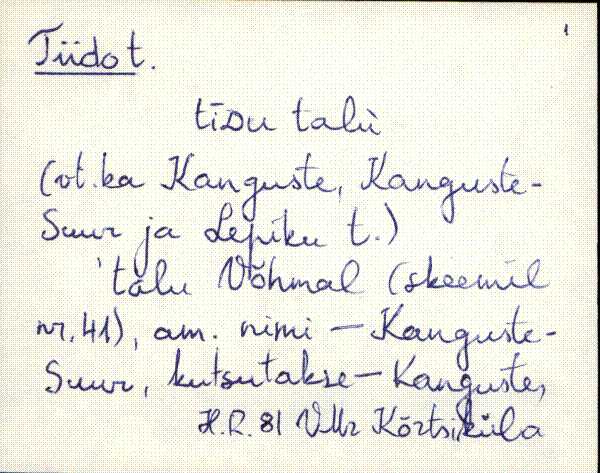 1
Tiido t.
tīDu talu
(vt. ka Kanguste, Kanguste-
Suur ja Lepiku t.)
'talu Võhmal (skeemil
nr. 41), am. nimi - Kanguste-
Suur, kutsutakse - Kanguste,
H.R. 81 VMr Kõrtsiküla